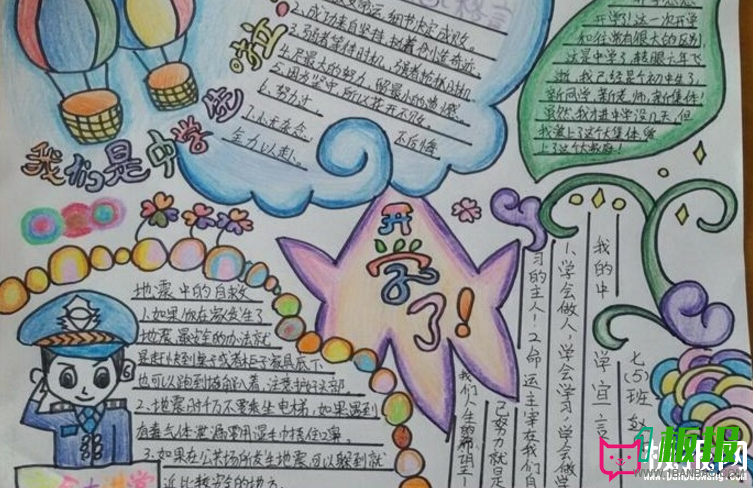 我们是中学生啦
2.成功来自坚持,执着创造奇迹。
4.尽最大的努力,留最小的遗憾。
5.因为坚守,所以花开不败。
6.努力过
不后悔
全力以赴。
开学了这一次开学
和往常有很大的反为
这是中学了,转眼六年飞
逝,我已经是个初中生了。
新同学,新老师,新集体!
虽然,我才进中学没几天,但
我爱上了这个大集体,爱
上了这个大家庭!
开学了!
地震中的自救
1.如果你在家发生了
地震,最安全的办法就
是赶快到桌子或者柜子家具底下
也可以跑到墙角趴着,注意护好头部
2.地震时千万不要乘坐电梯,如果遇到
有毒气体泄漏要用湿毛巾捂住口鼻。
3.如果在公共场所发生地震,可以躲到就
近比较安全的地方。
我的中学宣言
1.学会做人,学会学习,学会做学
习的主人!2.命运主宰在我们自
己努力就是
我们人生的希望!
七(5)班
1板报
WWW.1BANBAO.COM